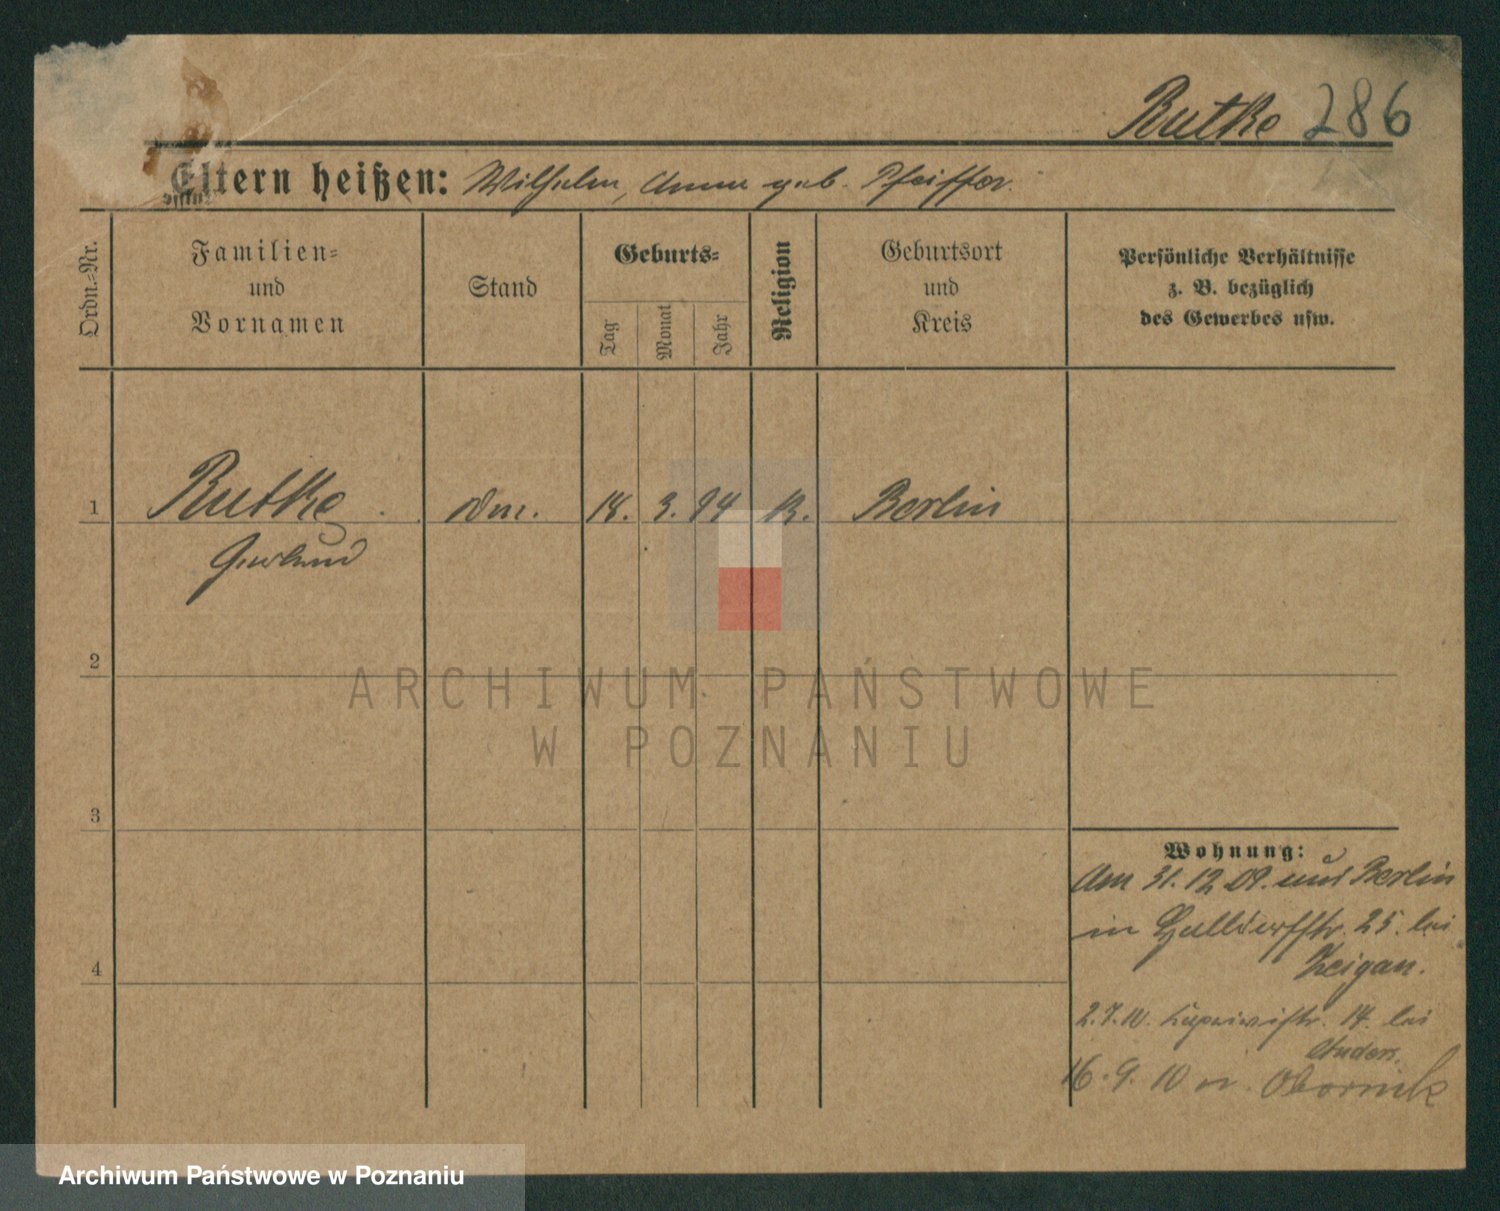 Rutke 286
Eltern heißen: Wilhelm, Anna geb. Pfeiffer.
Ordn.-Nr.
Familien- und Vornamen
Stand
Geburts-
Tag
Monat
Jahr
Religion
Geburtsort und Kreis
Persönliche Verhältnisse
z. B. bezüglich
des Gewerbes usw.
1 Rutke 18. 3. 94 Berlin
Gerhard
2
ARCHIWUM PAŃSTWOWE
W POZNANIU
3
4
Wohnung:
Am 31.12.09. aus Berlin
in 25. bei
Zeigan.
2.7.10. Capriviistr. 14. bei
Anders.
16.9.10 n. Obornik
Archiwum Państwowe w Poznaniu